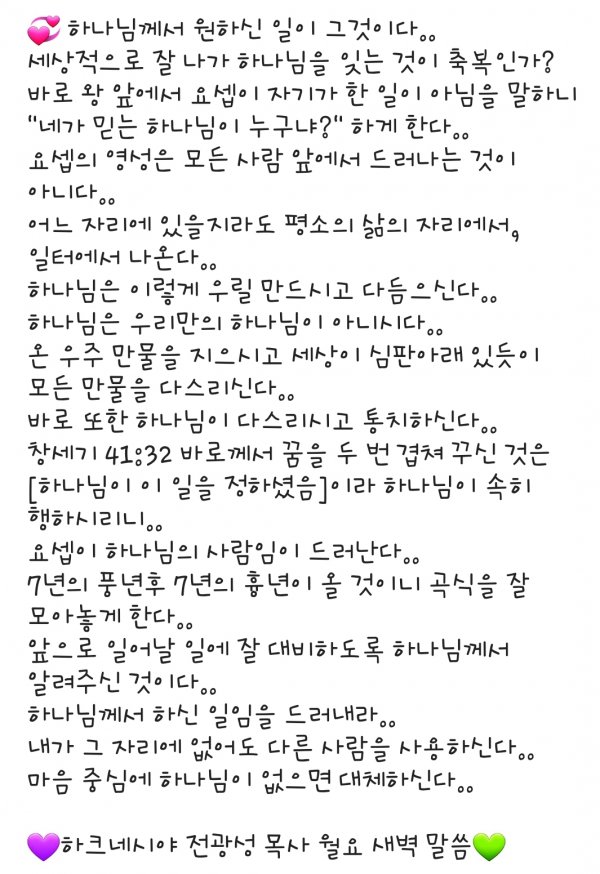 💞 하나님께서 원하신 일이 그것이다..
세상적으로 잘 나가 하나님을 잊는 것이 축복인가?
바로 왕 앞에서 요셉이 자기가 한 일이 아님을 말하니
"네가 믿는 하나님이 누구냐?" 하게 한다..
요셉의 영성은 모든 사람 앞에서 드러나는 것이
아니다..
어느 자리에 있을지라도 평소의 삶의 자리에서,
일터에서 나온다..
하나님은 이렇게 우릴 만드시고 다듬으신다..
하나님은 우리만의 하나님이 아니시다..
온 우주 만물을 지으시고 세상이 심판아래 있듯이
모든 만물을 다스리신다..
바로 또한 하나님이 다스리시고 통치하신다..
창세기 41:32 바로께서 꿈을 두 번 겹쳐 꾸신 것은
[하나님이 이 일을 정하셨음]이라 하나님이 속히
행하시리니..
요셉이 하나님의 사람임이 드러난다..
7년의 풍년후 7년의 흉년이 올 것이니 곡식을 잘
모아놓게 한다..
앞으로 일어날 일에 잘 대비하도록 하나님께서
알려주신 것이다..
하나님께서 하신 일임을 드러내라..
내가 그 자리에 없어도 다른 사람을 사용하신다..
마음 중심에 하나님이 없으면 대체하신다..
💜하크네시야 전광성 목사 월요 새벽 말씀💚